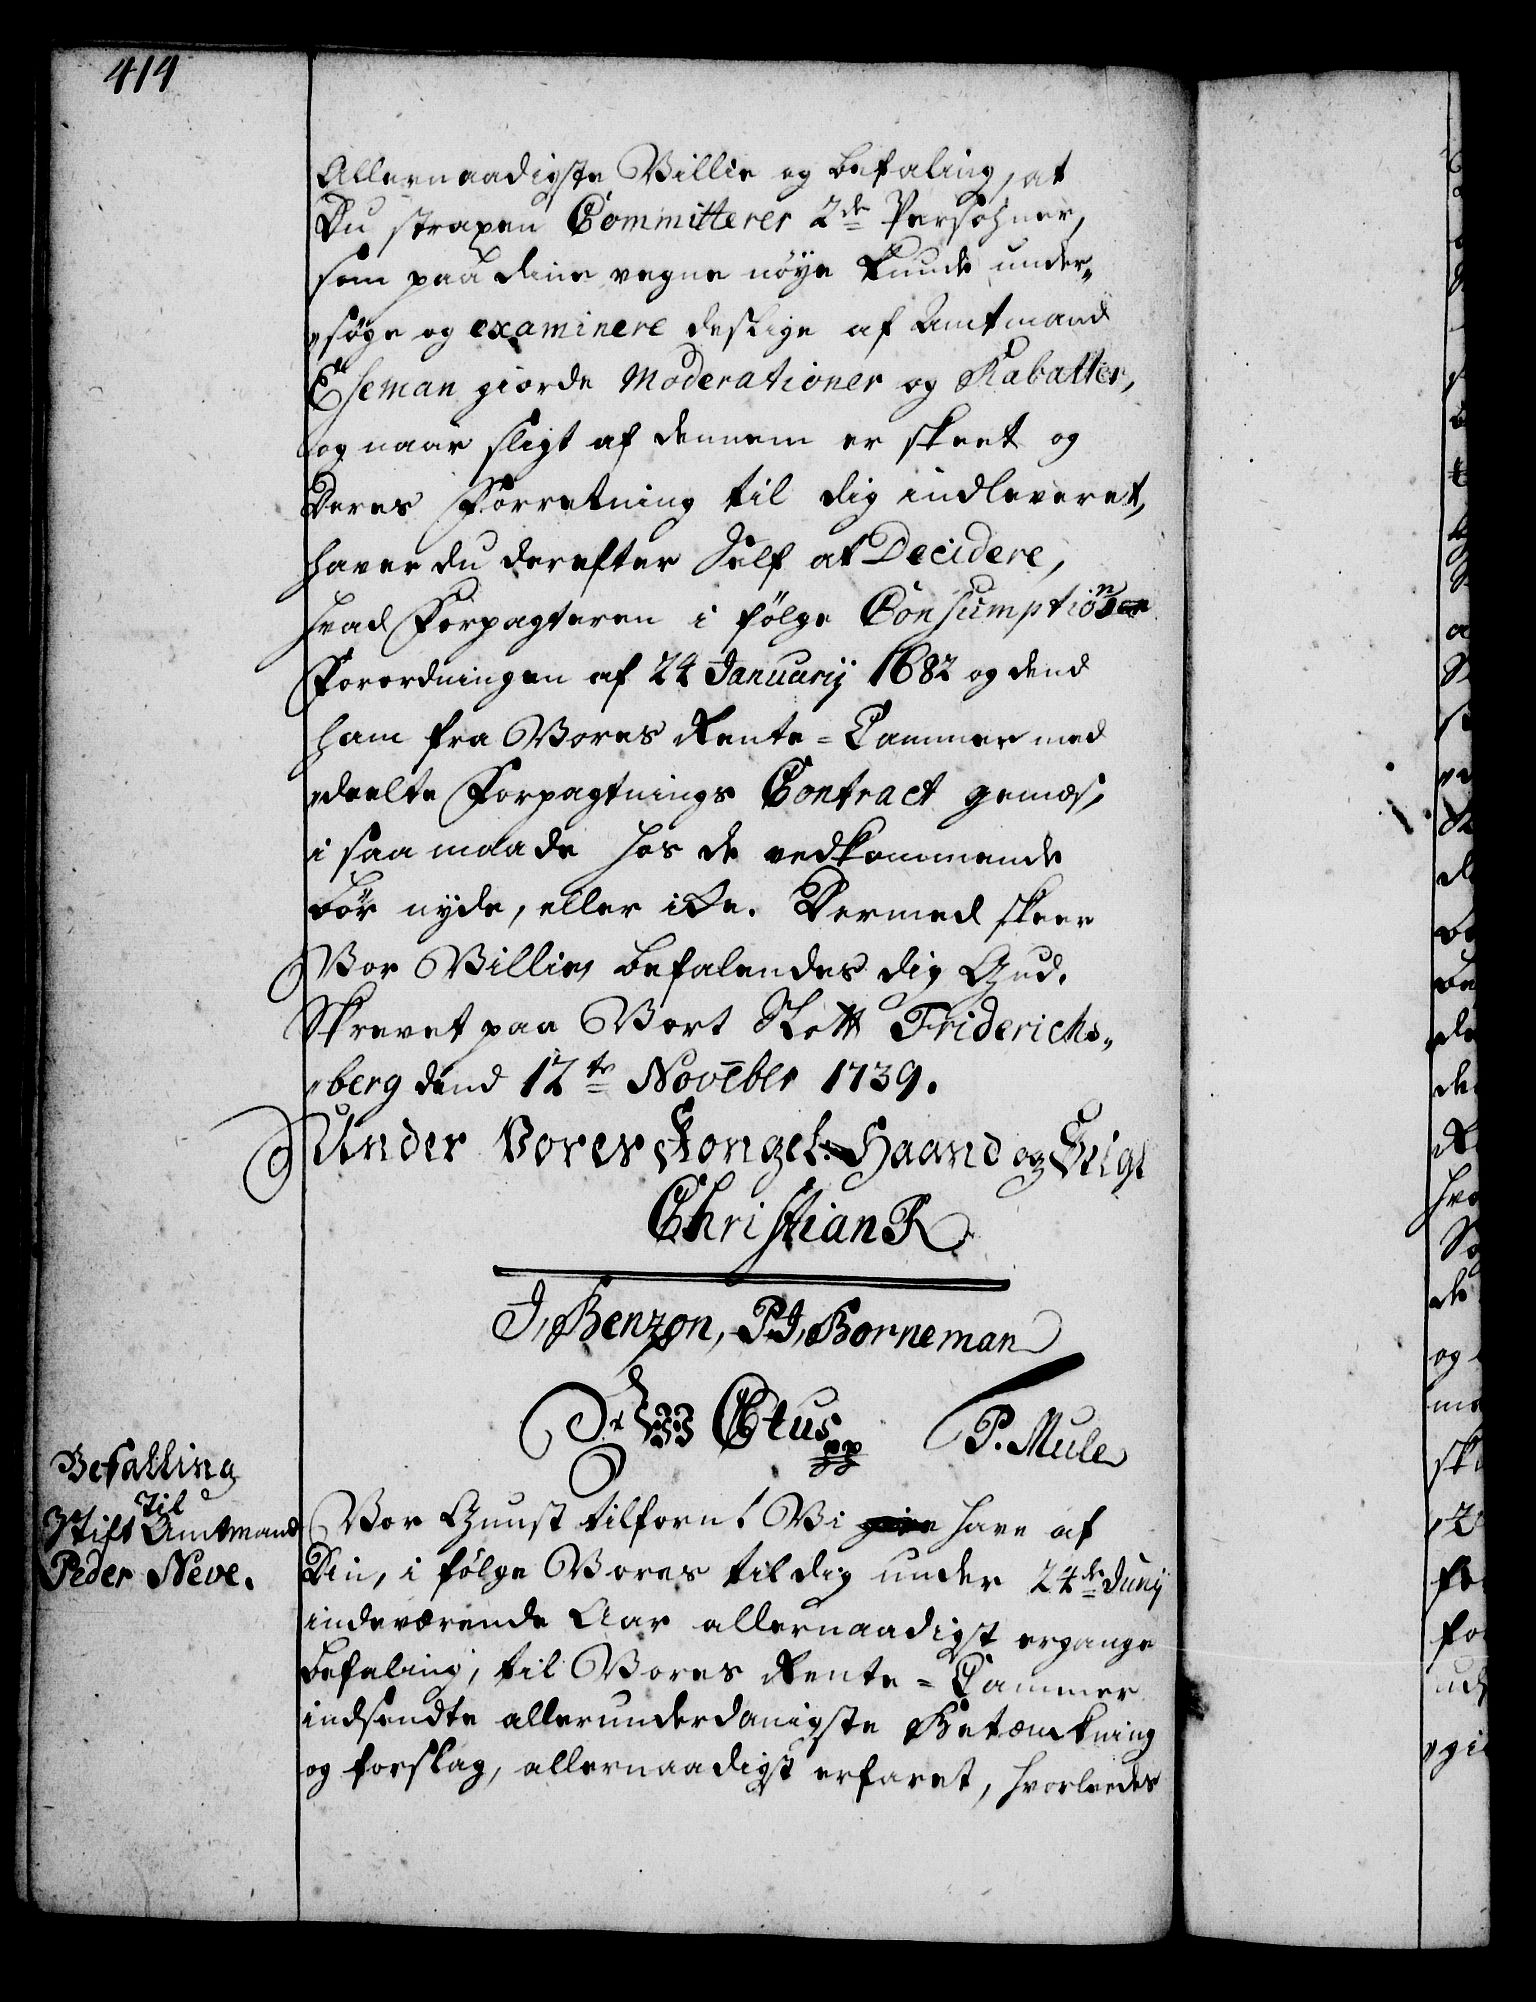 414
Allernaadigste Villie og befaling, at
Du strapen Committerer 2de Persohner,
som paa dine vegne nøye kunde under„
„søge og examinere deslige af Amtmand
Eseman giorde Moderationer og Rabatter,
og naar sligt af dennem er skeet og
Deres Forretning til dig indleveret,
haver du derefter Self at Decidere,
hvad Forpagteren i følge Consumptions
Forordningen af 24 Januarij 1682 og dend
ham fra Vores Rente=Cammer med
„deelte Forpagtnings Contract gemæs,
i saa maade hos de vedkommende
bør nyde, eller ike. Dermed skeer
Vor Villie, befalendes dig Gud.
Skrevet paa Vort Slott Friderichs„
„berg dend 12te Novēber 1739.
Under Vores Kongel. Haand og Seigl
Christian R
J, Benzon, P.J, Borneman
Ætus pp P. Mule
Befalling
til
Stift Amtmand
Peder Neve.
Vor Gunst tilforn! Vi have af
Din, i følge Vores til dig under 24de Junij
indeværende Aar allernaadigst ergange
befaling, til Vores Rente=Cammer
indsendte allerunderdanigste Betænkning
og forslag, allernaadigst erfaret, hvorleedes